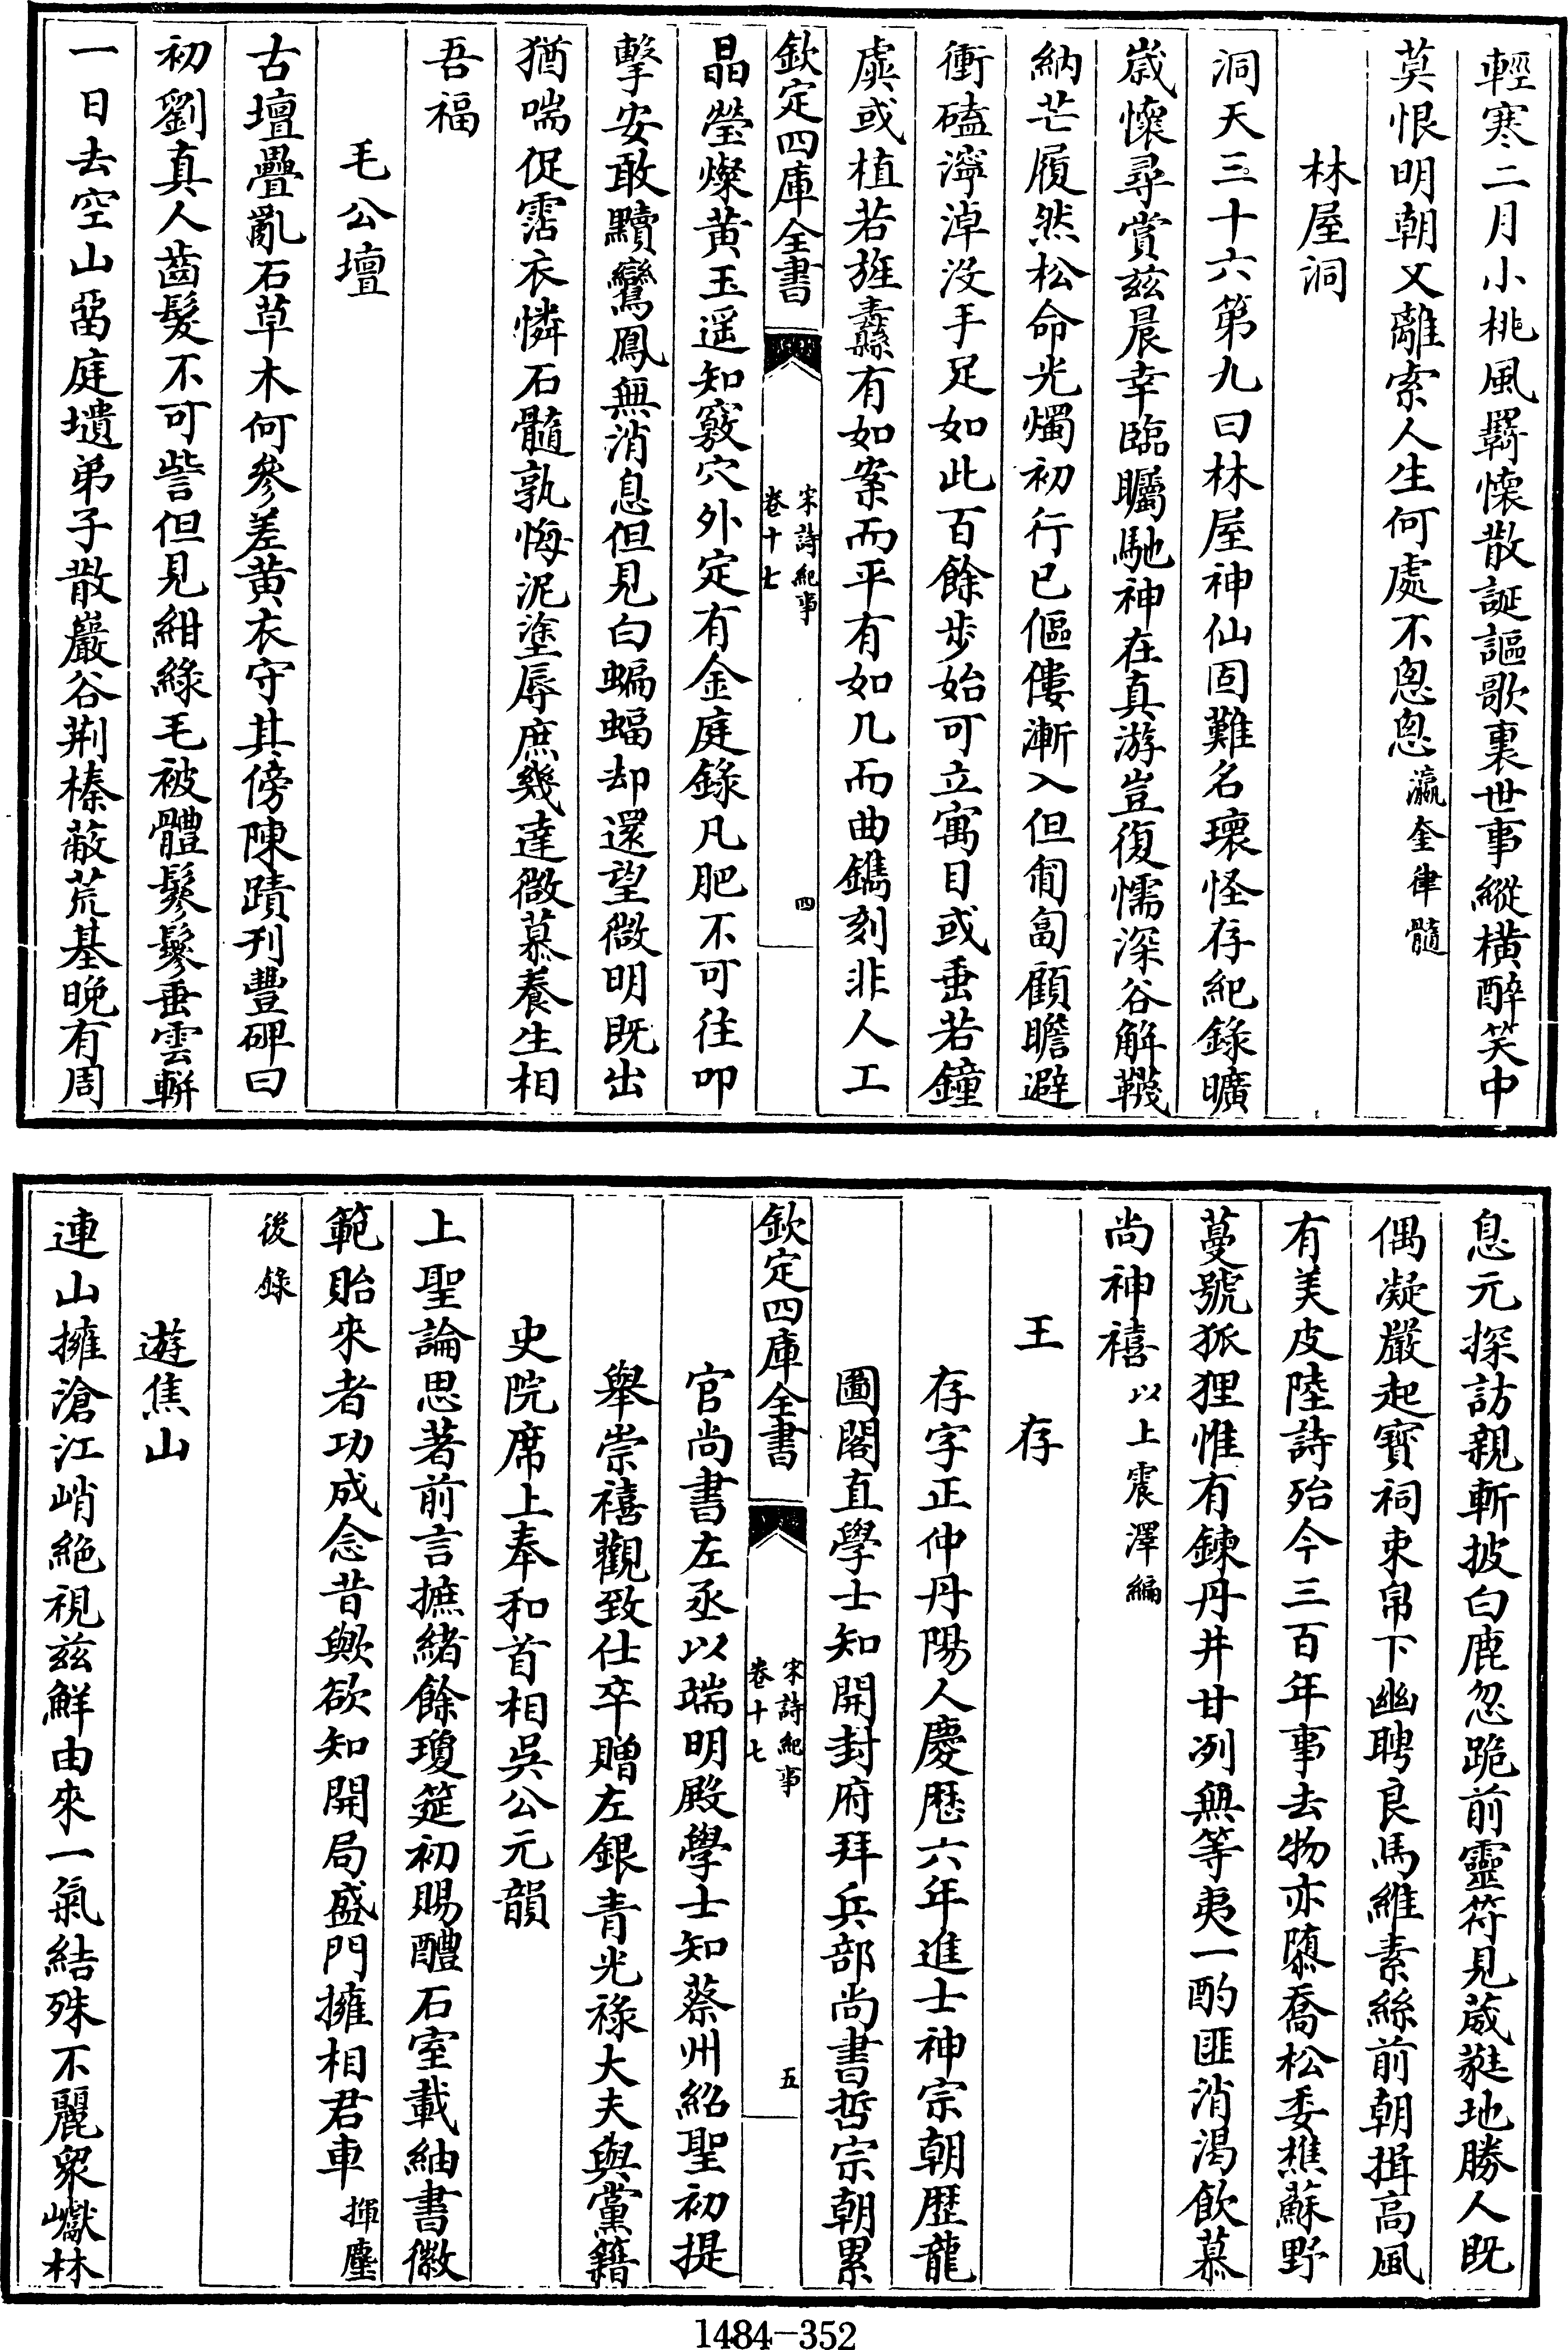 輕寒二月小桃風羇懷散誕謳歌裏世事縱橫醉笑中
莫恨明朝又離索人生何處不怱怱瀛奎律髓
林屋洞
洞天三十六第九曰林屋神仙固難名瓌怪存紀錄曠
歲懷尋賞兹晨幸臨矚馳神在真游豈復懦深谷解韈
納芒履然松命光燭初行已傴僂漸入但匍匐顧瞻避
衝磕濘淖没手足如此百餘步始可立寓目或垂若鐘
虡或植若旌纛有如案而平有如几而曲鐫刻非人工
欽定四庫全書
宋詩紀事
卷十七
四
晶瑩燦黄玉遥知竅穴外定有金庭錄凡肥不可往叩
擊安敢黷鸞鳳無消息但見白蝙蝠却還望微明既出
猶喘促霑衣憐石髓孰悔泥塗辱庶幾達微慕養生相
吾福
毛公壇
古壇疊亂石草木何參差黄衣守其傍陳蹟刋豐碑曰
初劉真人齒髮不可訾但見紺綠毛被體鬖鬖垂雲軿
一日去空山畱庭壝弟子散巖谷荆榛蔽荒基晩有周
息元探訪親斬披白鹿忽跪前靈符見葳蕤地勝人既
偶凝嚴起寳祠束帛下幽聘良馬維素絲前朝揖高風
有美皮陸詩殆今三百年事去物亦隳喬松委樵蘇野
蔓號狐狸惟有鍊丹井甘冽無等夷一酌匪消渴飲慕
尚神禧以上震澤編
王存
存字正仲丹陽人慶厯六年進士神宗朝歷龍
圖閣直學士知開封府拜兵部尚書哲宗朝累
欽定四庫全書
宋詩紀事
卷十七
五
官尚書左丞以端明殿學士知蔡州紹聖初提
舉崇禧觀致仕卒贈左銀青光祿大夫與黨籍
史院席上奉和首相吳公元韻
上聖論思著前言摭緒餘瓊筵初賜醴石室載紬書徽
範貽來者功成念昔歟欲知開局盛門擁相君車揮麈
後錄
遊焦山
連山擁滄江峭絶視兹鮮由來一氣結殊不麗衆巘林
1484-352